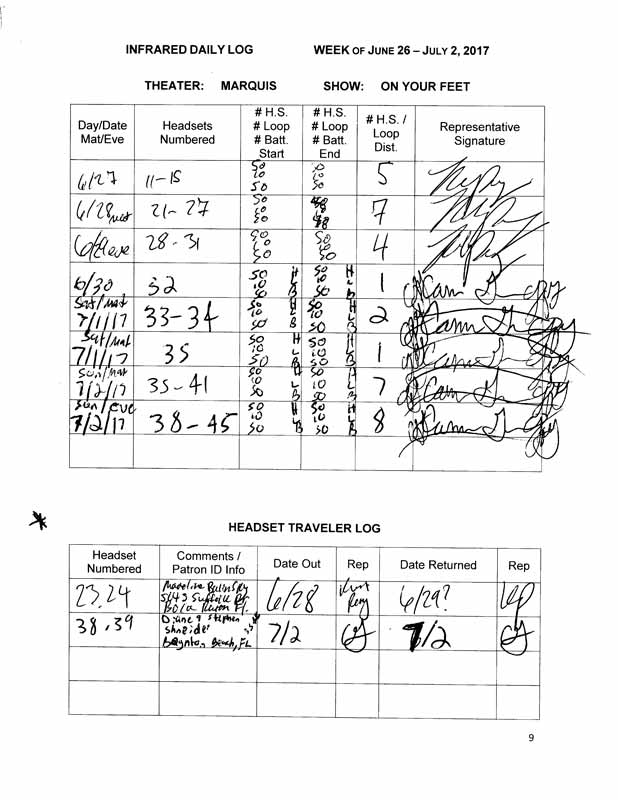 INFRARED DAILY LOG WEEK OF JUNE 26 – JULY 2, 2017
THEATER: MARQUIS SHOW: ON YOUR FEET
Day/Date Mat/Eve
Headsets Numbered
# H.S. # Loop # Batt. Start
# H.S. # Loop # Batt. End
# H.S. / Loop Dist.
Representative Signature
6/27 11-15 50 10 50 50 10 50 5
6/28 mat 21-27 50 50 7
eve 28-31 50 10 50 50 10 50 4
6/30 32 50 H 10 L 50 B 50 H 10 L 50 B 1
Sat/mat 7/1/17 33-34 50 H 10 L 50 B 50 H 10 L 50 B 2
Sat/mat 7/1/17 35 50 H 10 L 50 B 50 H 10 L 50 B 1
Sun/mat 7/2/17 35-41 50 H 10 L 50 B 50 H 10 L 50 B 7
Sun/eve 7/2/17 38-45 50 H 10 L 50 B 50 H 10 L 50 B 8
HEADSET TRAVELER LOG
Headset Numbered
Comments / Patron ID Info
Date Out
Rep
Date Returned
Rep
23,24 Madeline 5643 Suffolk Boca Raton Fl. 6/28 6/29?
38,39 Diane & Stephen Boynton Beach, FL 7/2 7/2
9